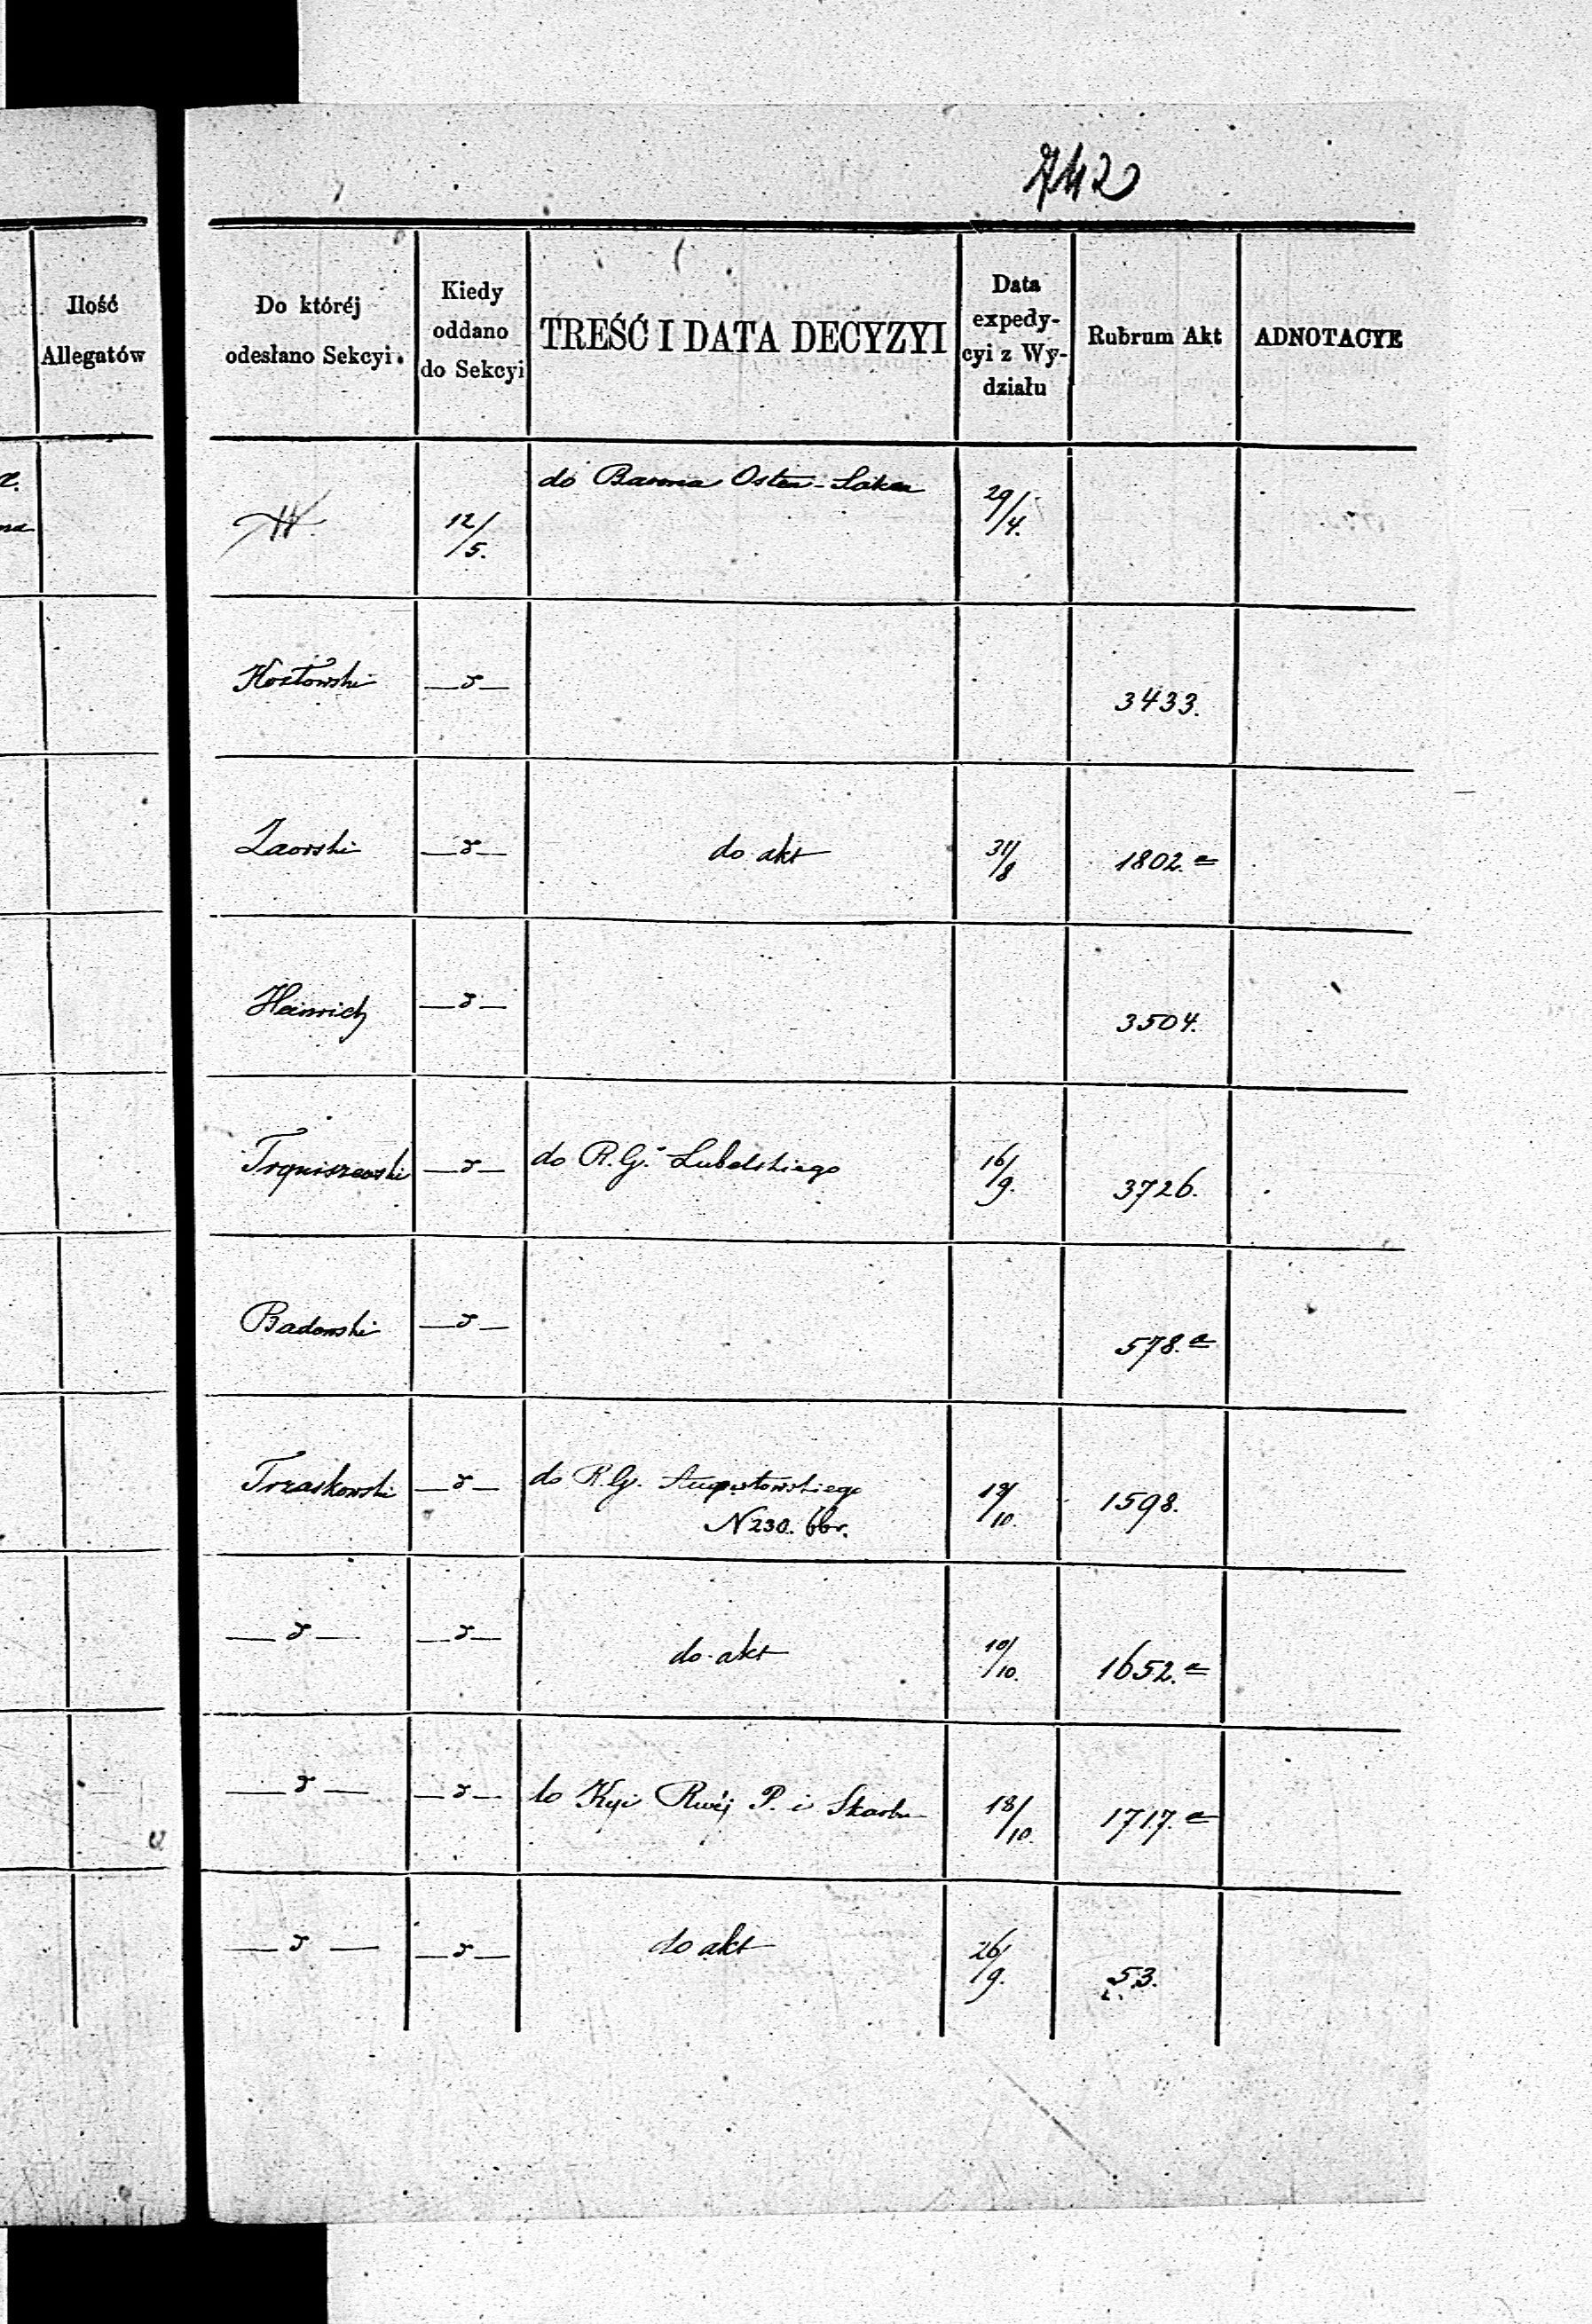 742
Ilość
Allegatów
Do któréj
odesłano Sekcyi.
Kiedy
oddano
do Sekcyi
TREŚĆ I DATA DECYZYI
Data
expedy-
cyi z Wy-
działu
Rubrum Akt
ADNOTACYE
W. 12/5. do Barona Osten-Saken 29/4.
Kozłowski —d— 3433.
Zaorski —d— do akt 31/8 1802.a
Heinrich —d— 3504.
—d— do R.G. Lubelskiego 16/9. 3726.
Badowski —d— 578.a
Trzaskowski —d— do R.G. Augustowskiego 19/10. 1598.
N 230.
—d— —d— do akt 10/10. 1652.a
—d— —d— do Kyi Rwéj P. i Skarbu 18/10. 1717.a
—d— —d— do akt 26/9. 53.